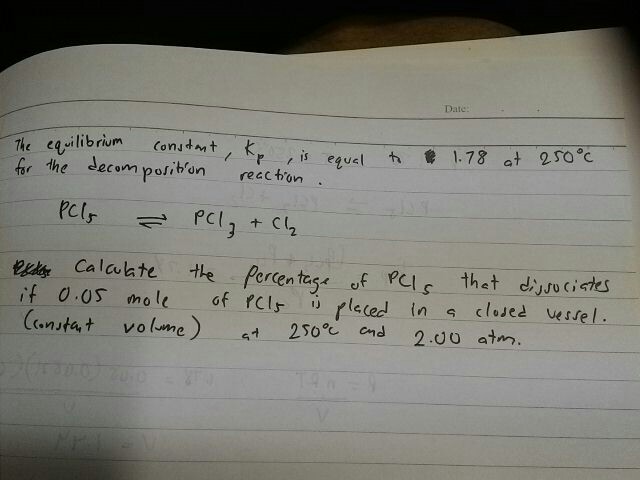 Date:
The equilibrium constant, Kp, is equal to 1.78 at 250°C
for the decomposition reaction.
PCl5 ⇌ PCl3 + Cl2
Calculate the percentage of PCl5 that dissociates
if 0.05 mole of PCl5 is placed in a closed vessel.
(constant volume) at 250°C and 2.00 atm.